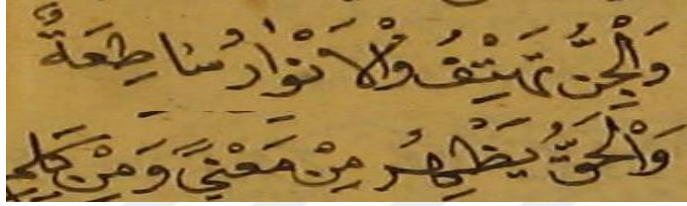 وَالْجِنُّ تَهْتِفُ وَالْأَنْوَارُ سَاطِعَةٌ
وَالْحَقُّ يَظْهَرُ مِنْ مَعْنًى وَمِنْ كَلِمِ